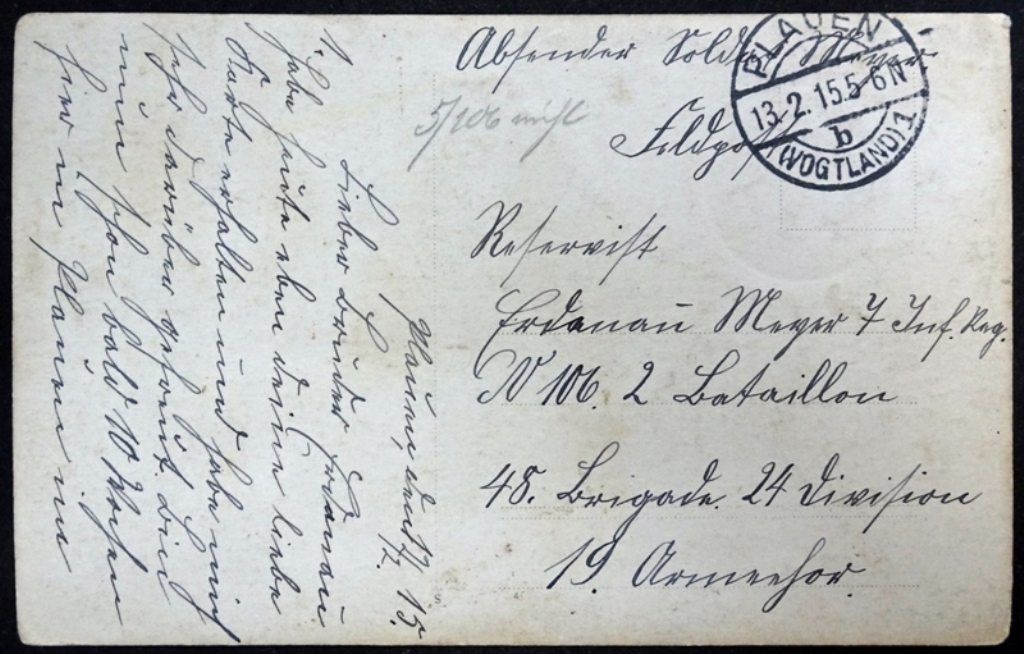 Absender Soldat Meyer
Feldpost
PLAUEN
13.2.15.5-6N
b
(VOGTLAND)1
5/106
Reservist
Erdmann Meyer 7 Inf. Reg.
N 106. 2 Bataillon
48. Brigade. 24 Division
19. Armeehor.
Plauen, den 15.
Lieber Bruder Erdmann
Habe heute eben deine liebe
Karte erhalten und habe mich
sehr darüber gefreut. Bin
nun schon bald 10 Wochen
hier in Plauen im